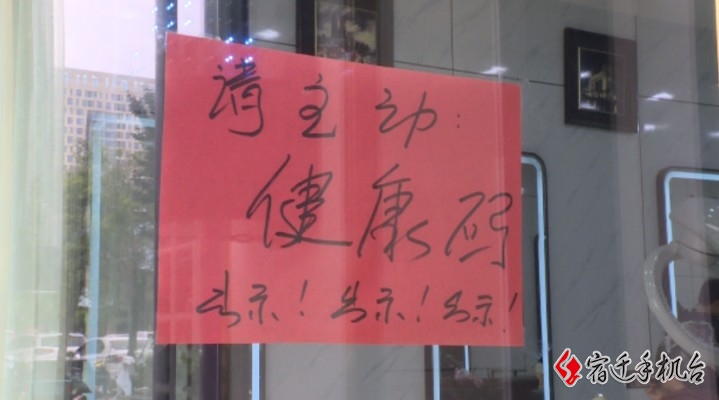 请主动:
健康码
出示!出示!出示!
宿迁手机台